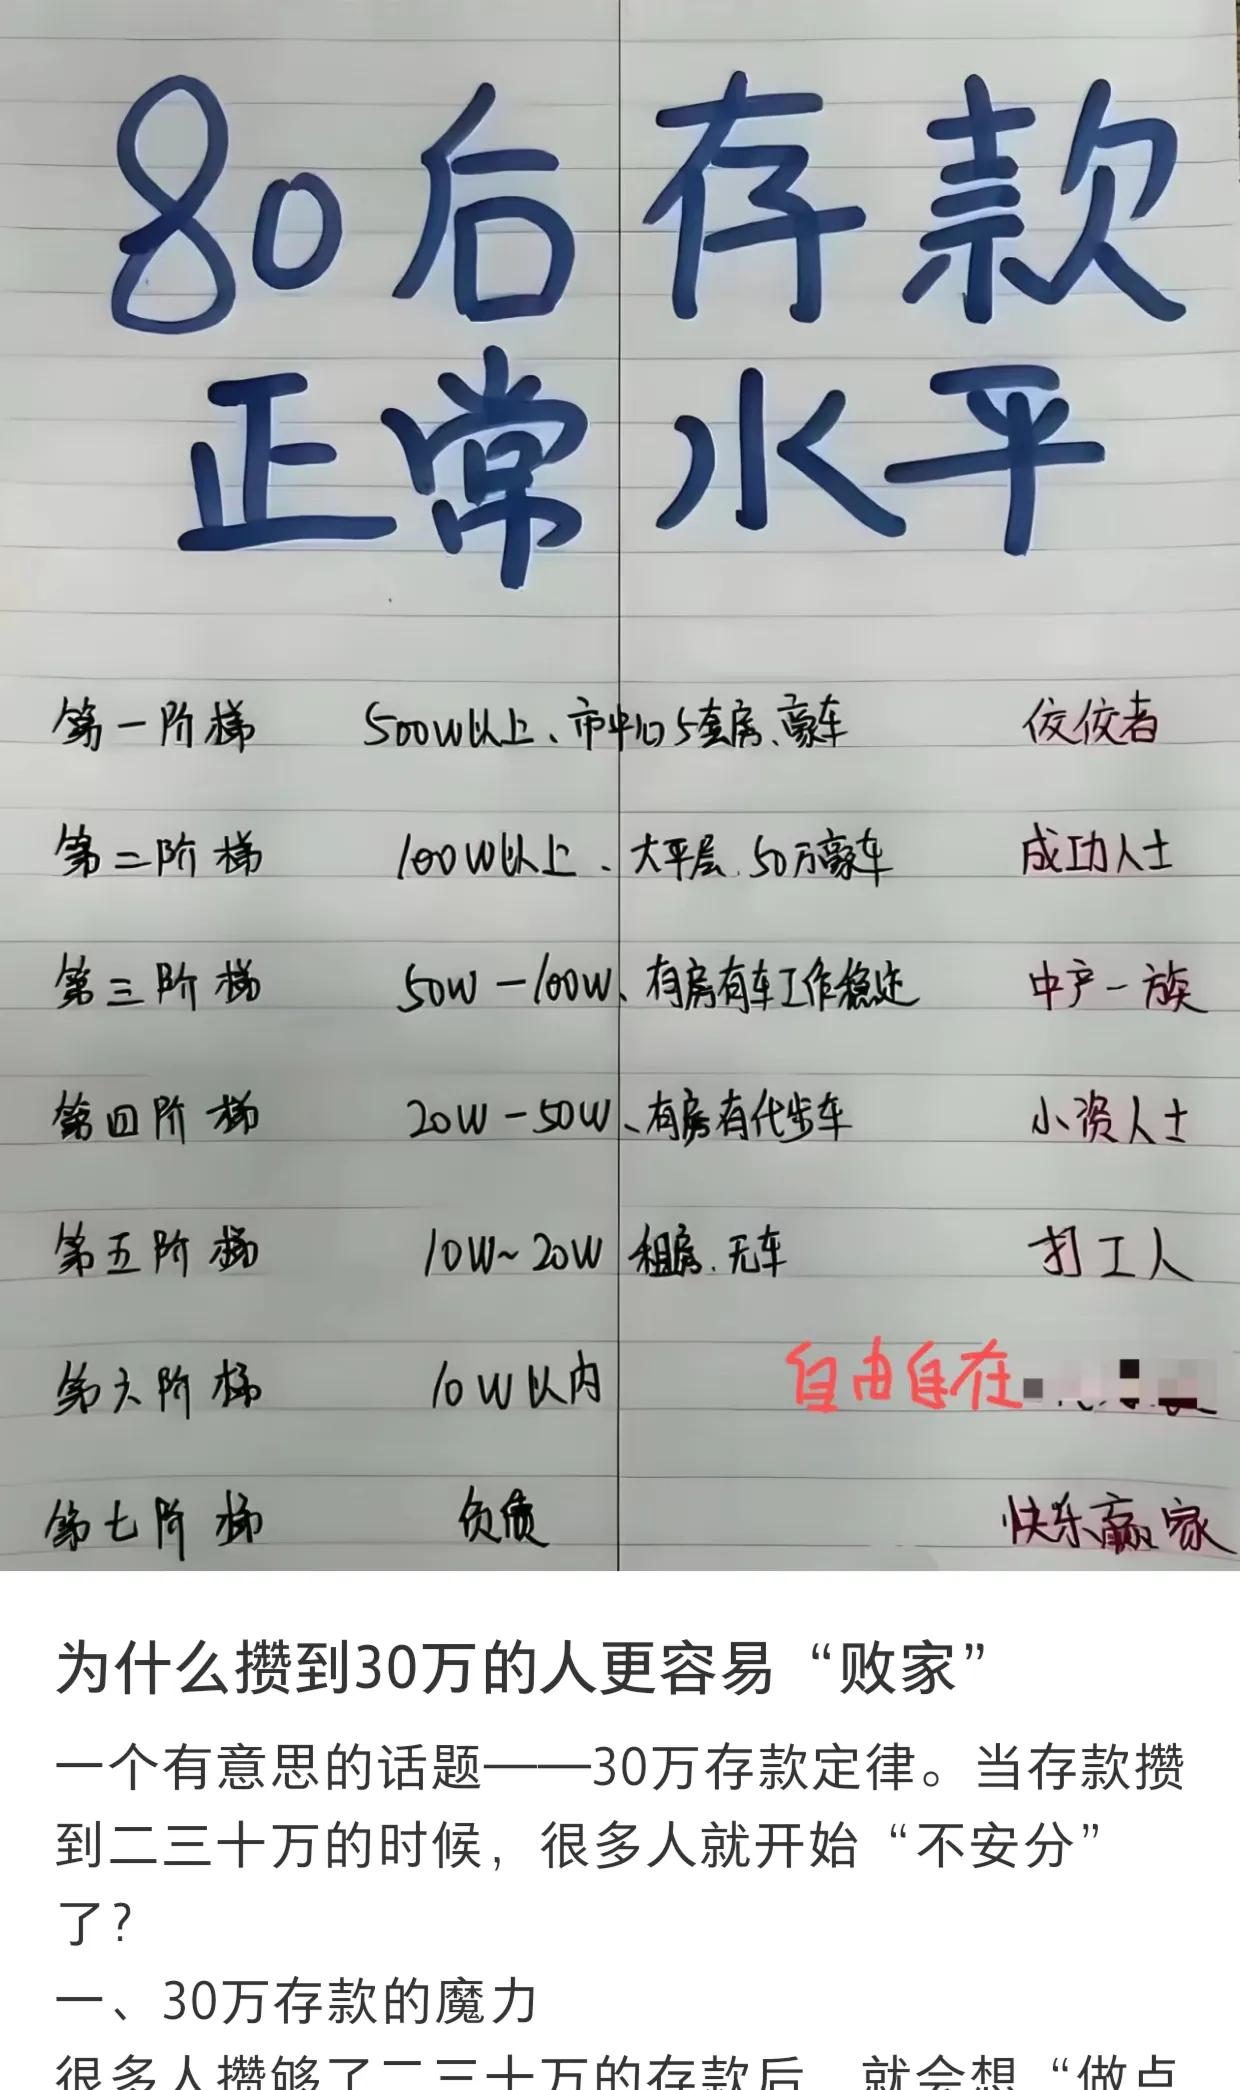 80后存款
正常水平
第一阶梯 500W以上、市中心5套房、豪车 佼佼者
第二阶梯 100W以上、大平层、50万豪车 成功人士
第三阶梯 50W-100W、有房有车工作稳定 中产一族
第四阶梯 20W-50W、有房有代步车 小资人士
第五阶梯 10W~20W 租房、无车 打工人
第六阶梯 10W以内 自由自在
第七阶梯 负债 快乐赢家
为什么攒到30万的人更容易“败家”
一个有意思的话题——30万存款定律。当存款攒
到二三十万的时候，很多人就开始“不安分”
了？
一、30万存款的魔力
很多人攒够了二三十万的存款后，就会想“做点